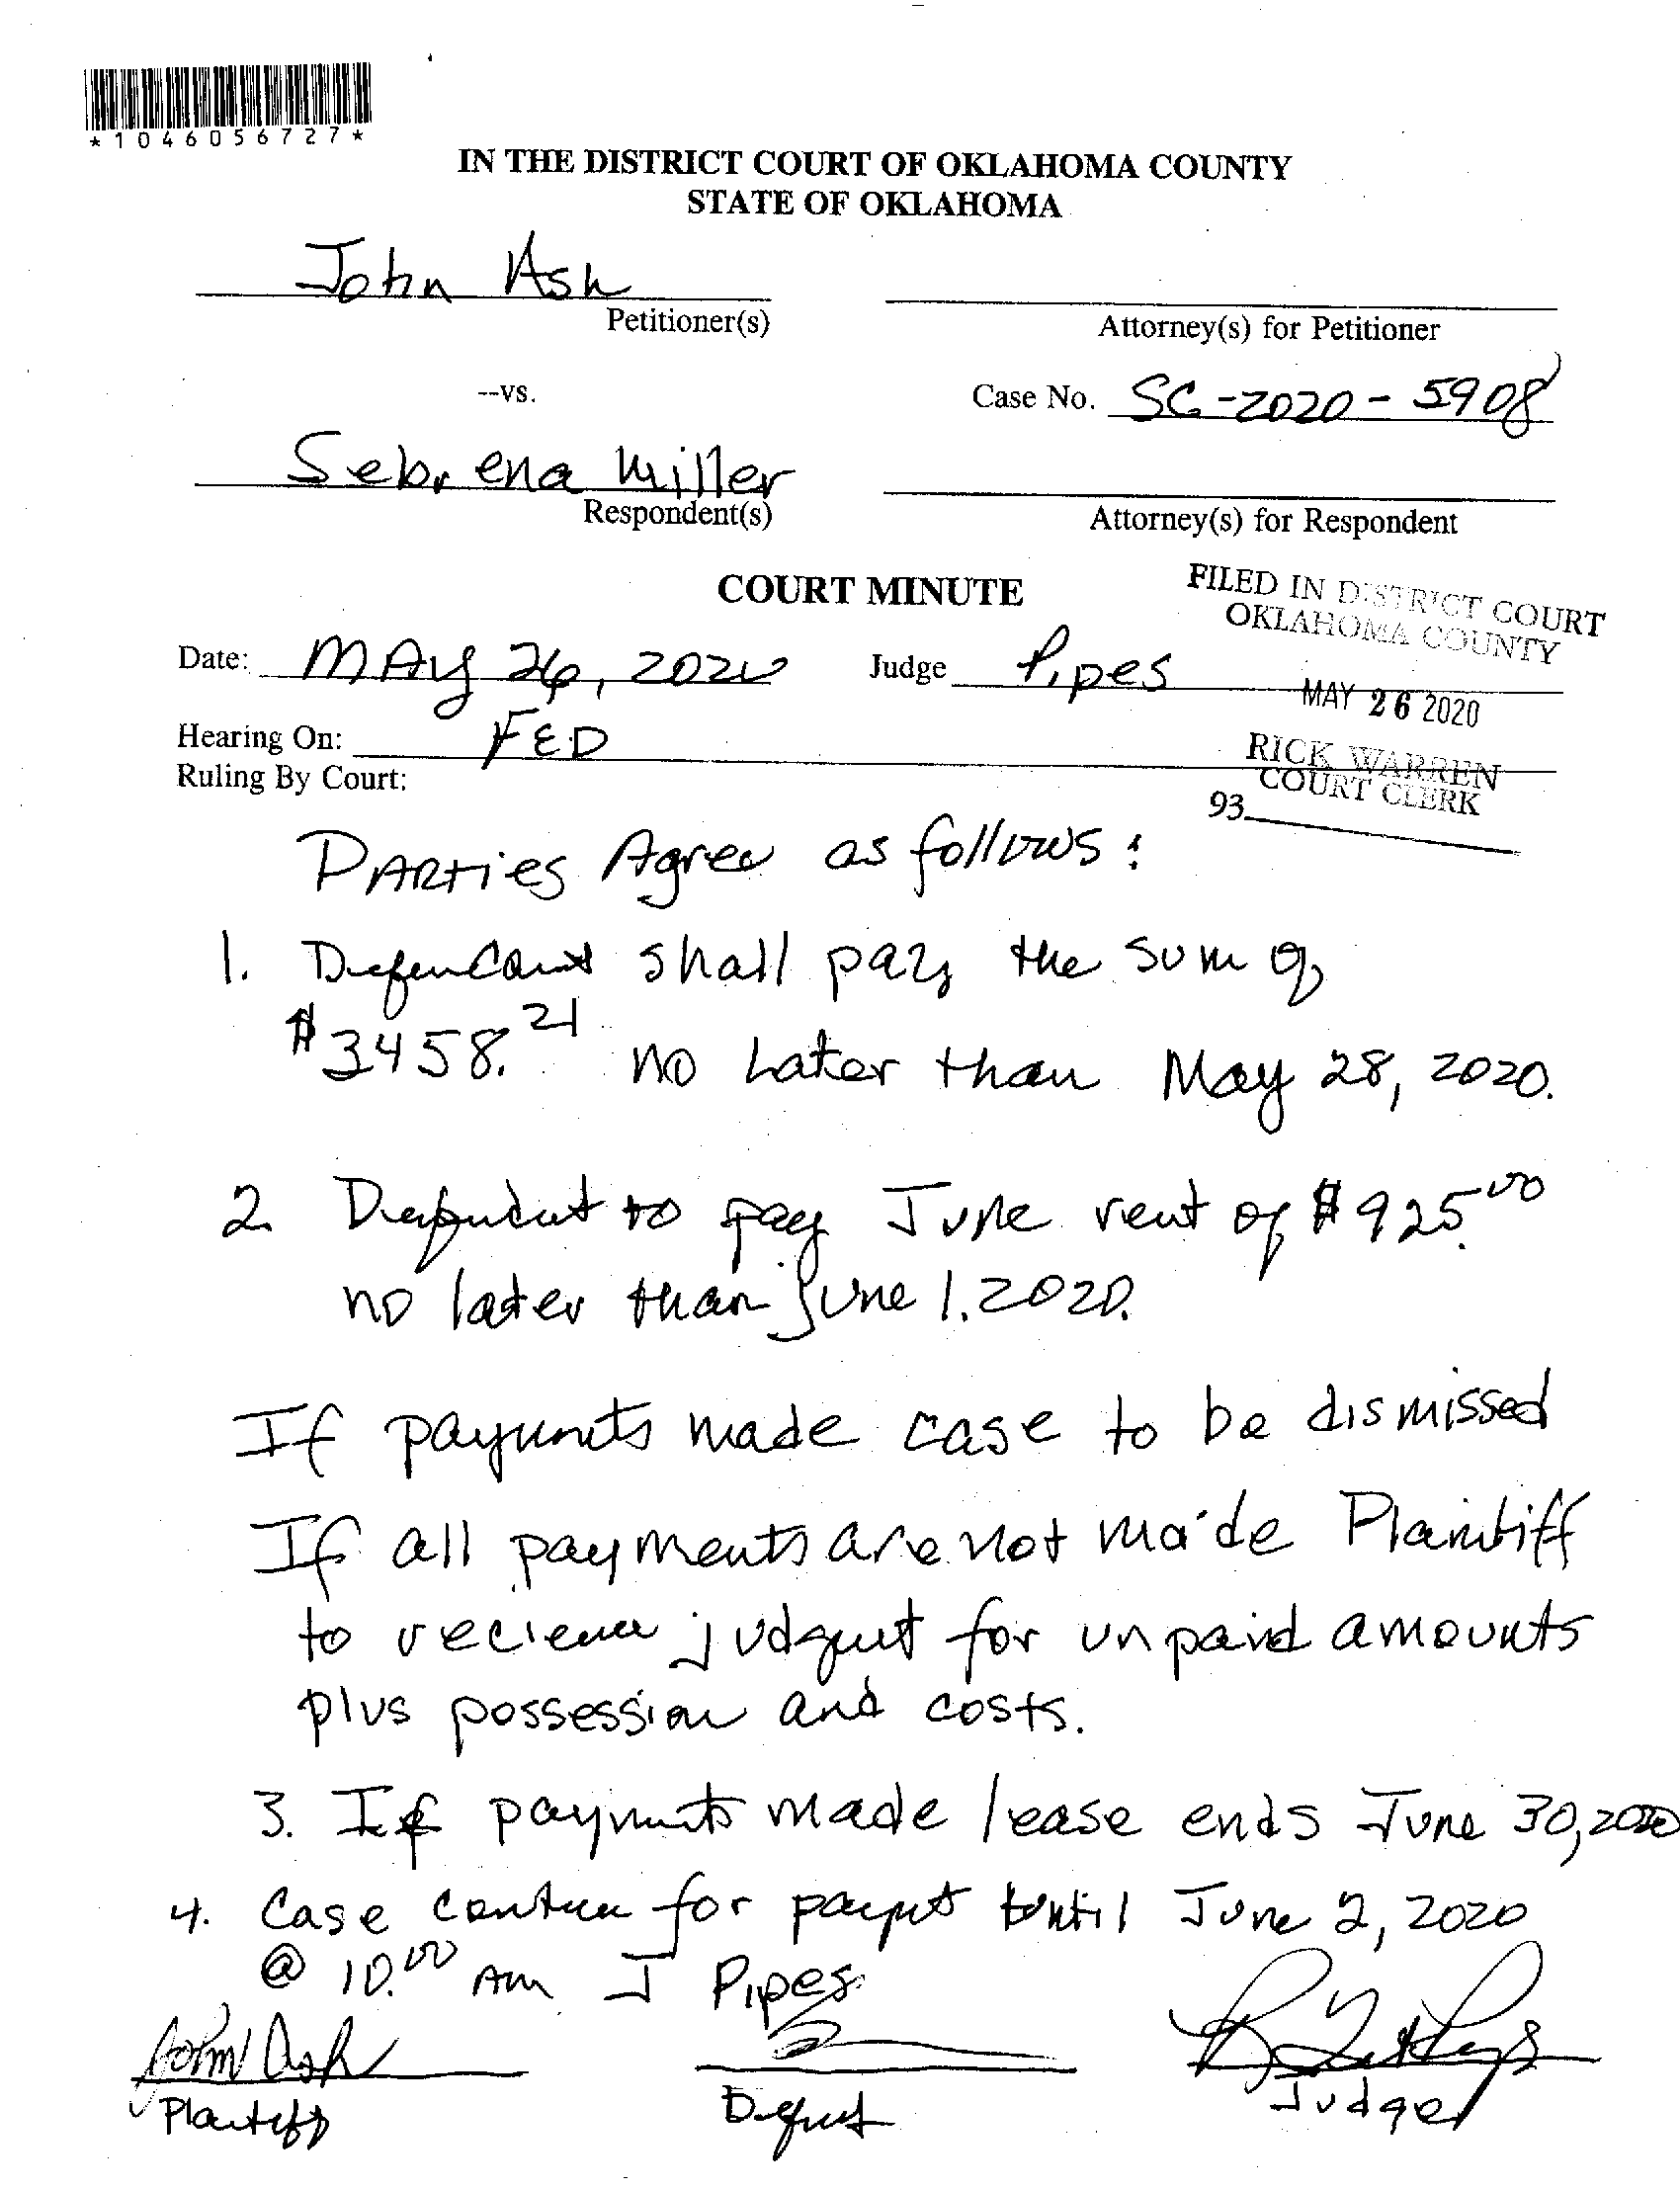 *1046056727*
IN THE DISTRICT COURT OF OKLAHOMA COUNTY
STATE OF OKLAHOMA
John Ash
Petitioner(s)
Attorney(s) for Petitioner
--vs.
Case No. SC-2020-5908
Sebrena Miller
Respondent(s)
Attorney(s) for Respondent
COURT MINUTE
FILED IN DISTRICT COURT
OKLAHOMA COUNTY
Date: MAy 26, 2020 Judge Pipes
MAY 26 2020
Hearing On: FED
RICK WARREN
COURT CLERK
Ruling By Court:
93
PARTies Agree as follows:
1. Defendant shall pay the sum of
$3458.21 no Later than May 28, 2020.
2. Defendant to pay June rent of $925.00
no later than June 1. 2020.
If payments made case to be dismissed
If all payments are not made Plaintiff
to recieve judgmt for unpaid amounts
plus possession and costs.
3. If payments made lease ends June 30, 2020
4. Case for paymt until June 2, 2020
@ 10.00 AM J Pipes
John Ash
Plaintiff
Defendt
Judge